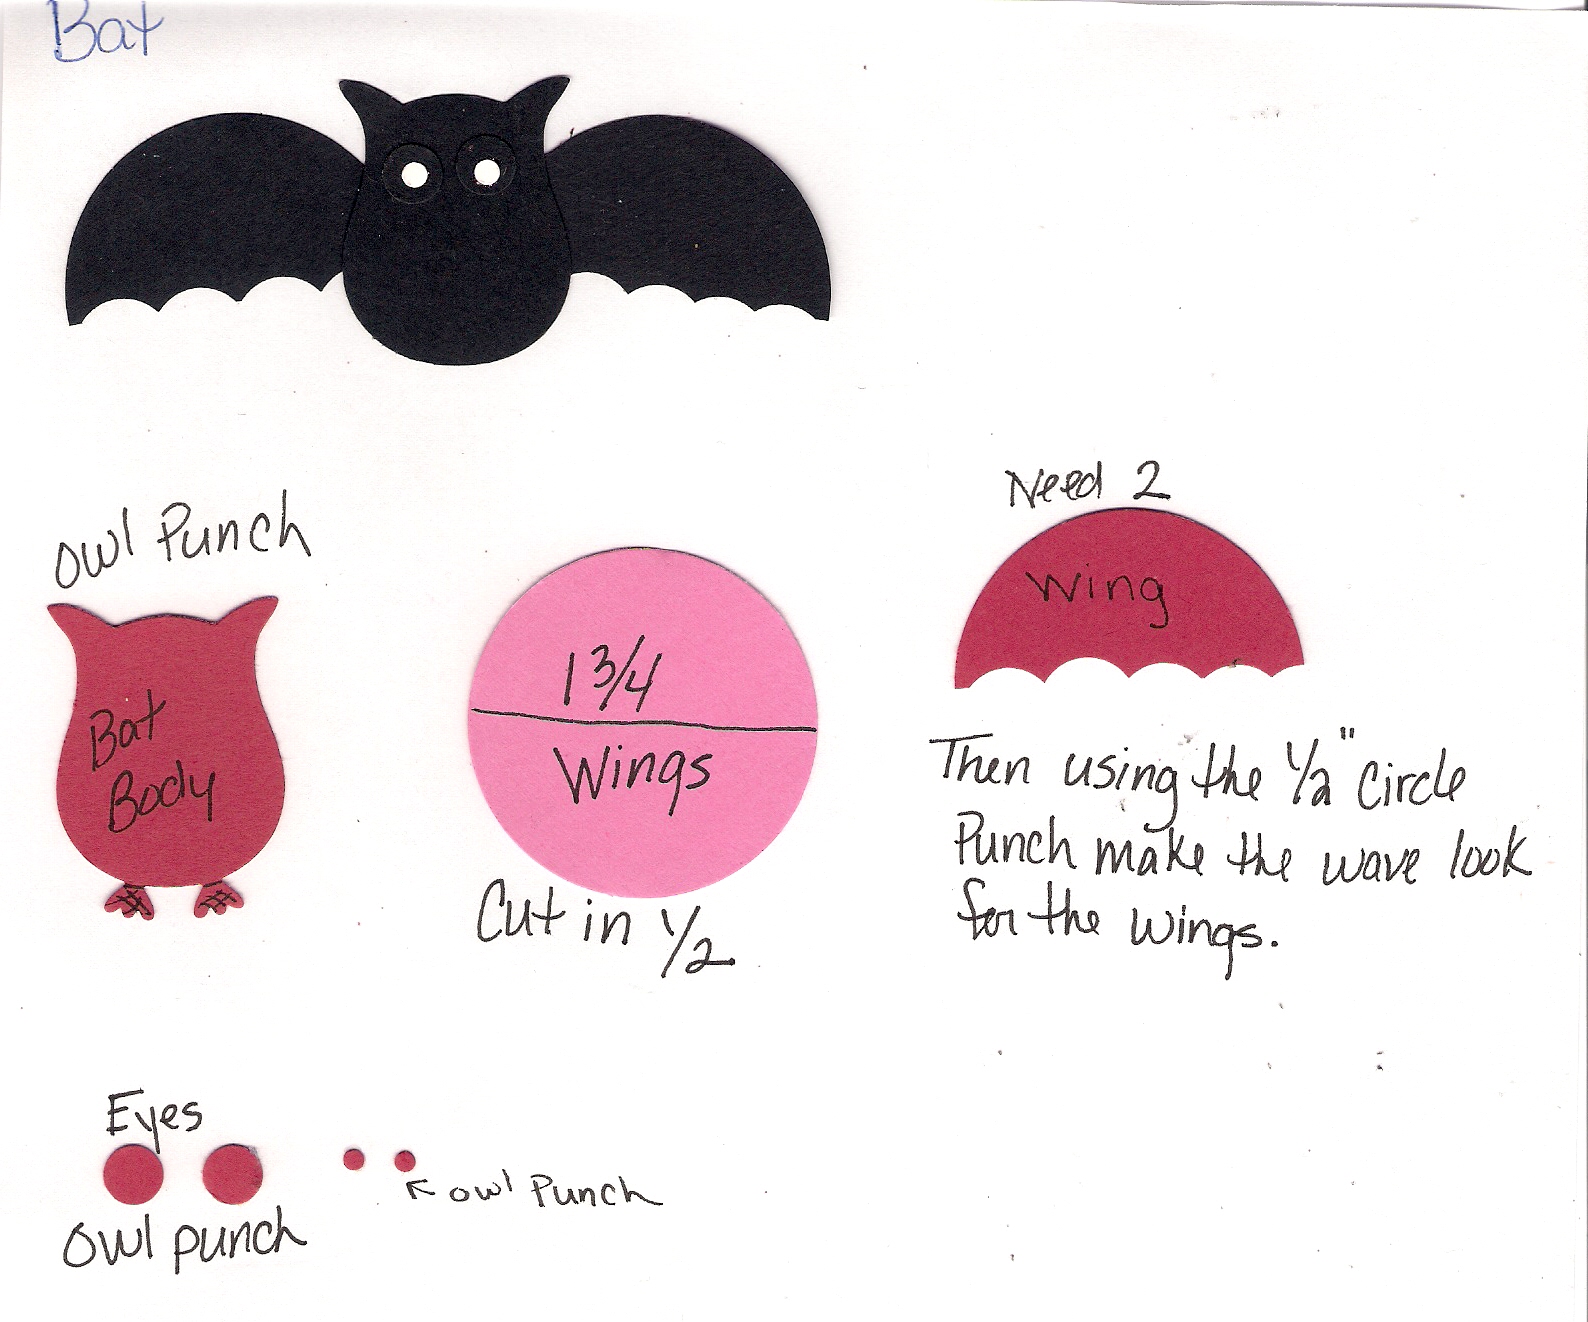 Bat
owl Punch
Bat
Body
1 3/4
Wings
Cut in 1/2
Need 2
Wing
Then using the 1/2" Circle
Punch make the wave look
for the wings.
Eyes
Owl punch
owl Punch